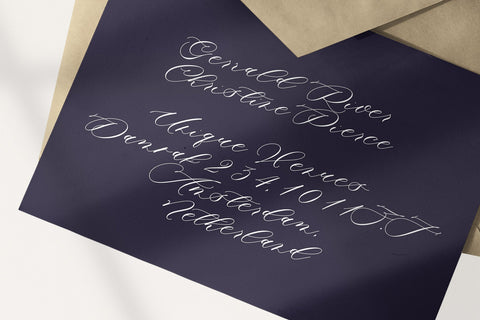 Gerrald River
Christine Pierce
Unique Venues
Damrak 234, 1011ZJ
Amsterdam,
Netherland